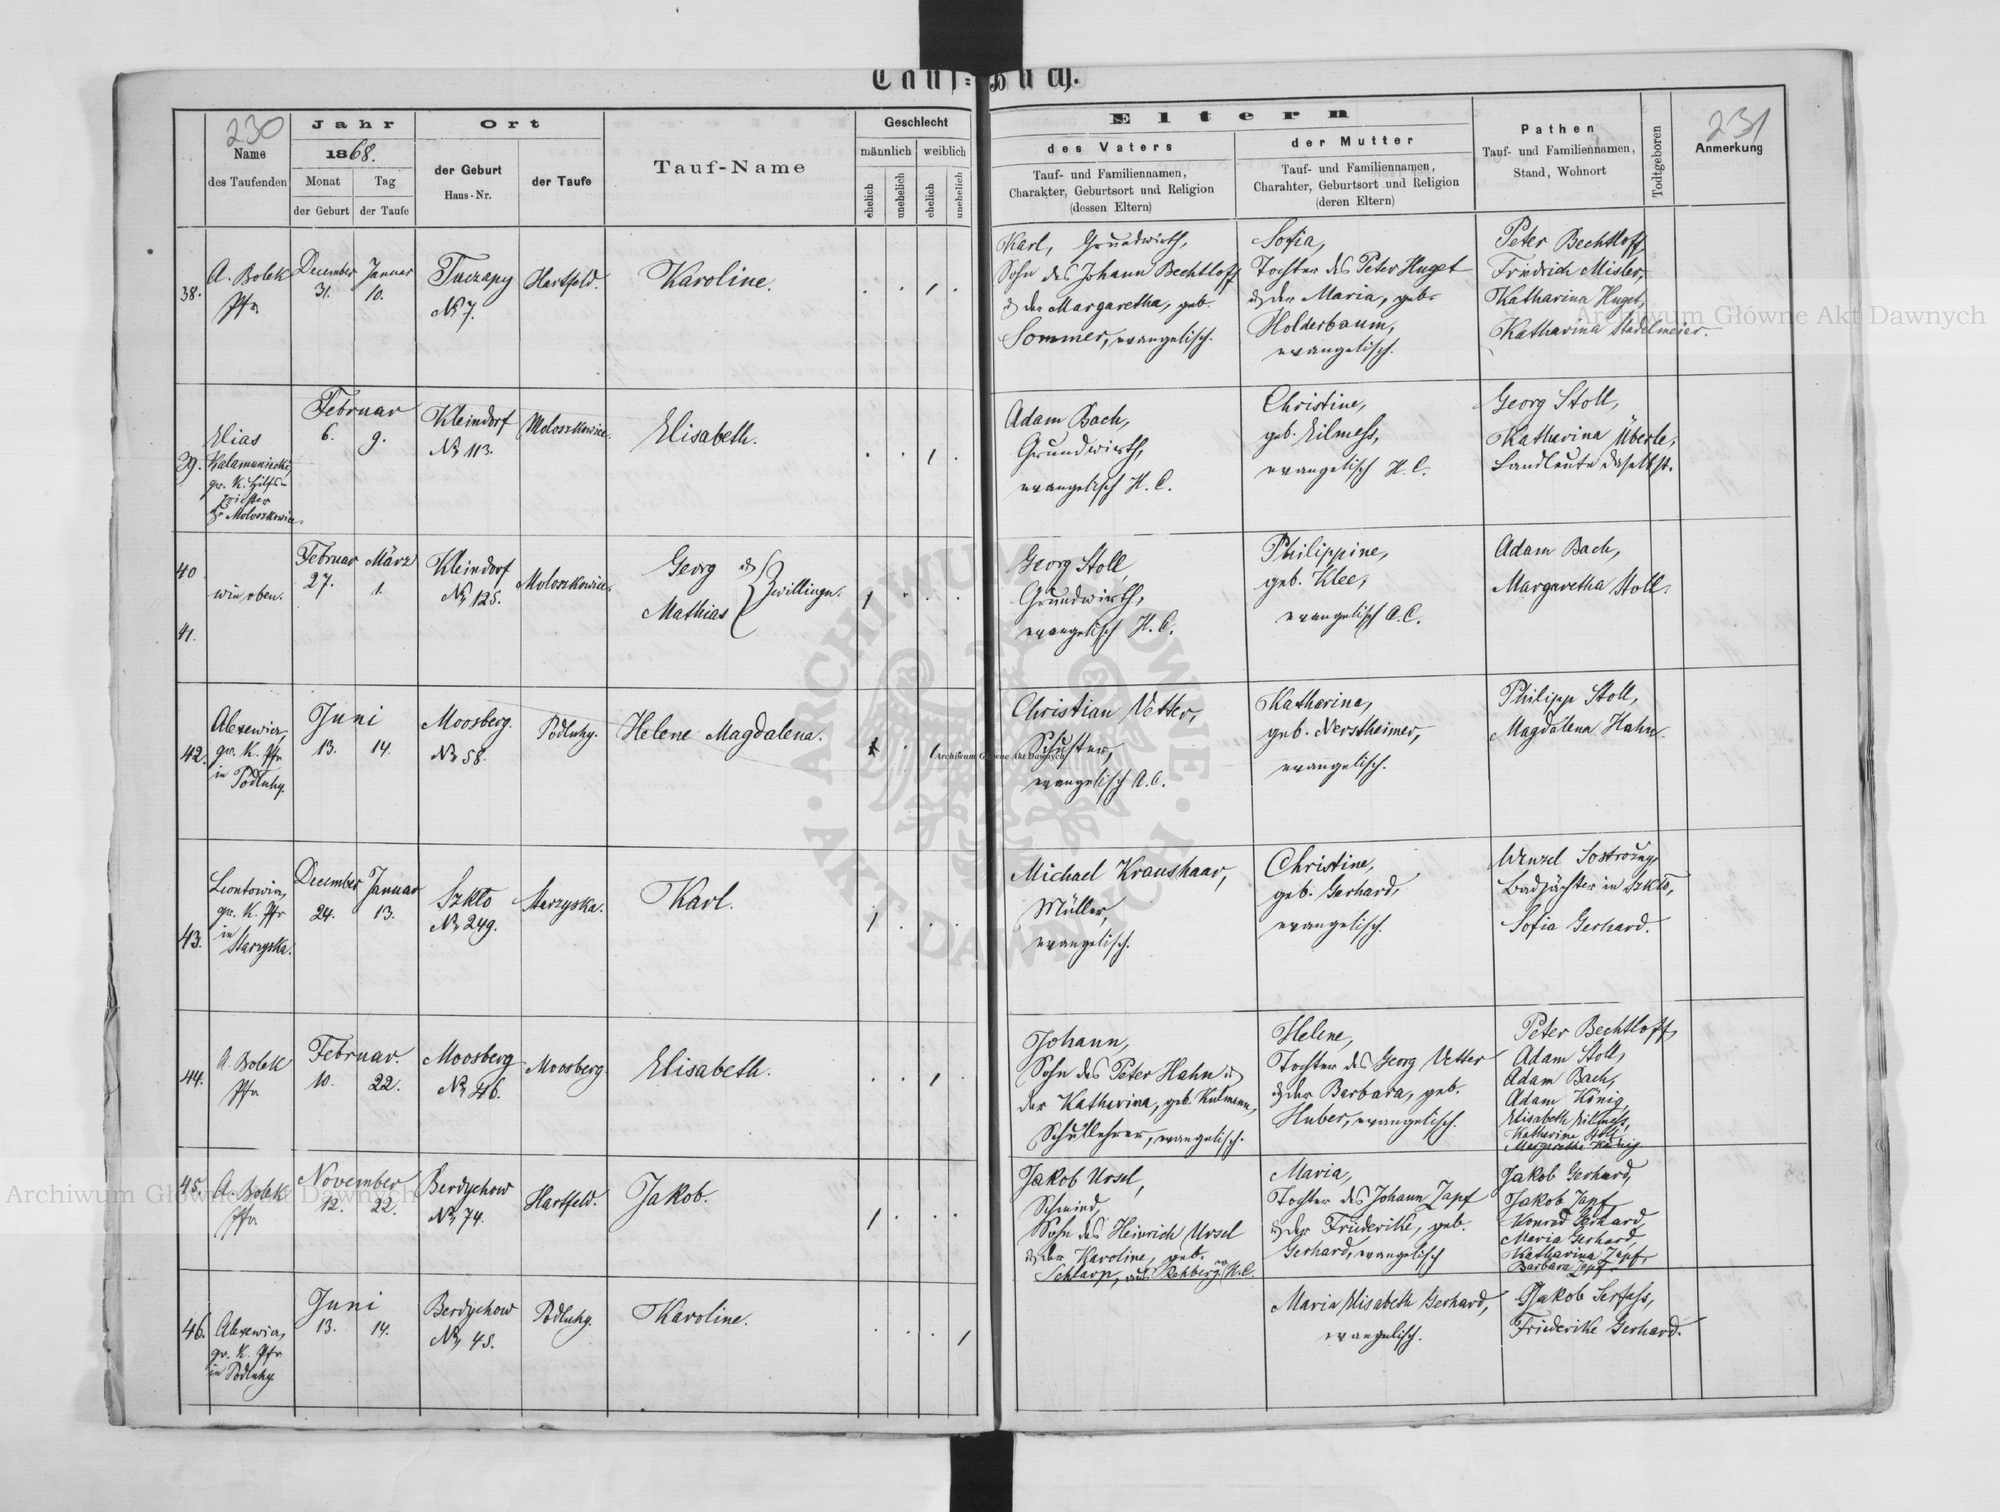 Tauf-Buch.
230
Name
des Taufenden
Jahr
1868.
Monat
Tag
der Geburt
der Taufe
Ort
der Geburt
Haus-Nr.
der Taufe
Tauf-Name
Geschlecht
männlich
weiblich
ehelich
unehelich
ehelich
unehelich
Eltern
des Vaters
Tauf- und Familiennamen,
Charakter, Geburtsort und Religion
(dessen Eltern)
der Mutter
Tauf- und Familiennamen,
Charahter, Geburtsort und Religion
(deren Eltern)
Pathen
Tauf- und Familiennamen,
Stand, Wohnort
Todtgeboren
231
Anmerkung
38.
A. Bolek
Pfr
December
31.
Januar
10.
Tuczapy
No 7.
Hartfeld.
Karoline.
Karl, Grundwirth,
Sohn des Johann Bechtloff
u der Margaretha, geb.
Sommer, evangelisch.
Sofia,
Tochter des Peter Huget
u der Maria, geb.
Holderbaum,
evangelisch.
Peter Bechtloff,
Friedrich Misler,
Katharina Huget,
Katharina Stadelmeier.
39.
Elias
Kalamuniecki,
gr. K. Hilfs-
priester
Moloszkowice.
Februar
6.
9.
Kleindorf
No 113.
Moloszkowice.
Elisabeth.
Adam Bach,
Grundwirth,
evangelisch H. C.
Christine,
geb. Eilmess,
evangelisch H. C.
Georg Stoll,
Katharina Überle,
Landleute daselbst.
40
41.
wie oben.
Februar
27.
März
1.
Kleindorf
No 125.
Moloszkowice.
Georg u
Mathias
Zwillinge.
Georg Stoll,
Grundwirth,
evangelisch H. C.
Philippine,
geb. Klee,
evangelisch A. C.
Adam Bach,
Margaretha Stoll.
42.
Alexewicz,
gr. K. Pfr
in Podluhy.
Juni
13.
14.
Moosberg.
No 58.
Podluhy.
Helene Magdalena.
Christian Vetter,
Schuster,
evangelisch A. C.
Katharina,
geb. Nerstheimer,
evangelisch.
Philipp Stoll,
Magdalena Hahn.
43.
Leontowicz,
gr. K. Pfr
in
Starzyska.
December
24.
Januar
13.
Szkło
No 249.
Starzyska.
Karl.
Michael Kraushaar,
Müller,
evangelisch.
Christine,
geb. Gerhard,
evangelisch.
Wenzel
Badpächter in Szkło,
Sofia Gerhard.
44.
A. Bolek
Pfr
Februar.
10.
22.
Moosberg
No 46.
Moosberg
Elisabeth.
Johann,
Sohn des Peter Hahn u
der Katharina, geb. Kulmann,
Schullehrer, evangelisch.
Helene,
Tochter des Georg Vetter
u der Barbara, geb.
Huber, evangelisch.
Peter Bechtloff,
Adam Stoll,
Adam Bach,
Adam König,
Elisabeth Eilmess,
Katharina Stoll,
Margarethe König
45.
A. Bolek
Pfr
November
12.
22.
Berdychow
No 74.
Hartfeld.
Jakob.
Jakob Ursel,
Schmied,
Sohn des Heinrich Ursel
u der Karoline, geb.
Schlarp, aus Rehberg, ev. H. C.
Maria,
Tochter des Johann Zapf
u der Friederike, geb.
Gerhard, evangelisch
Jakob Gerhard,
Jakob Zapf
Konrad Gerhard,
Maria Gerhard,
Katharina Zapf,
Barbara Zapf.
46.
Alexewicz,
gr. K. Pfr
in Podluhy
Juni
13.
14.
Berdychow
No 45.
Podluhy.
Karoline.
Maria Elisabeth Gerhard,
evangelisch.
Jakob Serfass,
Friederike Gerhard.
Archiwum Główne Akt Dawnych
Archiwum Główne Akt Dawnych
Archiwum Główne Akt Dawnych